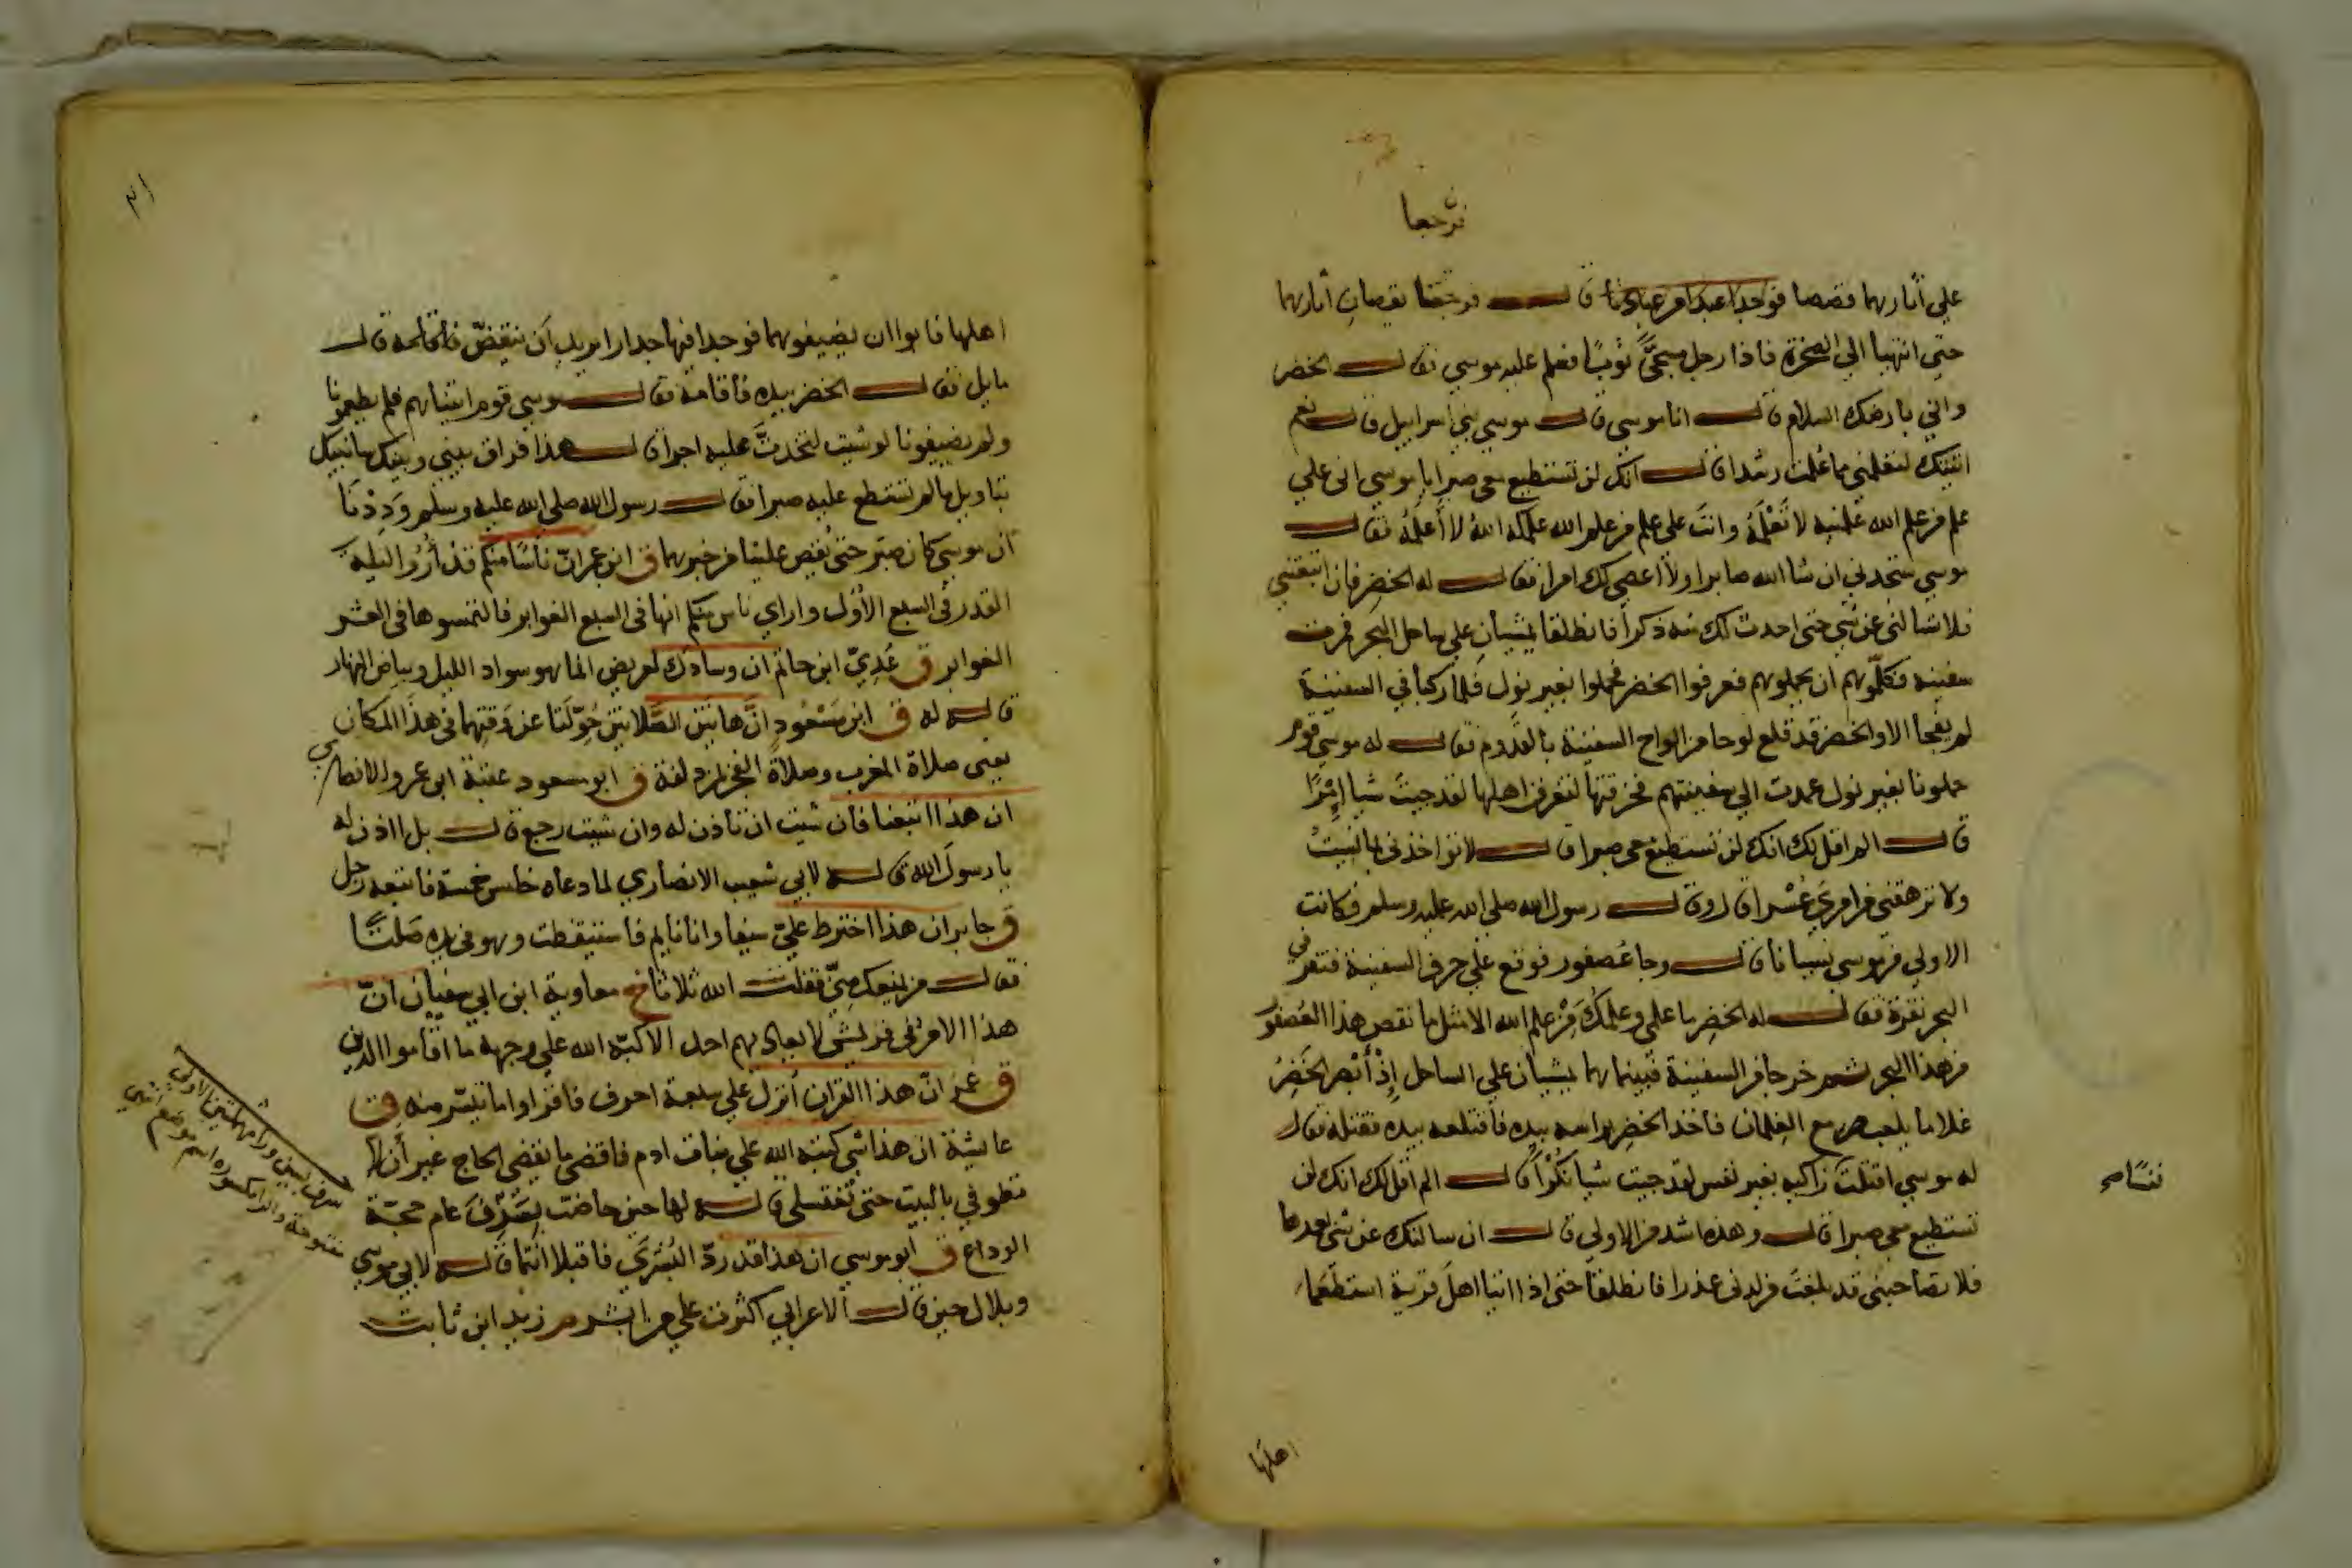 فرجعا
علي آثارهما قصصا فوجدا عبدا من عبادنا قال فرجعا يقصان آثارهما
حتى انتهيا الي الصخرة فاذا رجل مسجّى ثوبًا فسلم عليه موسي فقال الخضر
واني بارضك السلام قال انا موسى قال موسي بني اسراييل قال نعم
اتيتك لتعلمني مما علمت رشدا قال انك لن تستطيع معي صبرا يا موسي اني علي
علم من علم الله علمنيه لا تَعْلَمُهُ وانت على علم من علم الله علمكه الله لا أعلمُه فقال
موسي ستجدني ان شا الله صابرا ولا اعصي لك امرا فقال له الخضر فان اتبعتني
فلا تسالني عن شي حتى احدث لك منه ذكرا فانطلقا يمشيان علي ساحل البحر فمرت
سفينة فكلّموهم ان يحملوهم فعرفوا الخضر فحملوا بغير نول فلما ركبا في السفينة
لم يفجا الا والخضر قد قلع لوحا من الواح السفينة بالقدوم فقال له موسي قوم
حملونا بغير نول عمدت الي سفينتهم فخرقتها لتغرق اهلها لقد جيت شيا إِمْرًا
قال الم اقل لك انك لن تستطيع معي صبرا قال لا تواخذني بما نسيت
ولا ترهقني من امري عُسْرا قال وقال رسول الله صلى الله عليه وسلم وكانت
الاولي من موسي نسيانا قال وجا عصفور فوقع علي حرف السفينة فنقر في
البحر نقرة فقال له الخضر ما علمي وعلمك مِنْ علم الله الا مثل ما نقص هذا العُصفور
من هذا البحر ثم خرجا من السفينة فبينما هما يمشيان علي الساحل إِذْ أَبْصر الخَضِرُ
غلاما يلعب مع الغلمان فاخذ الخضر براسه بيده فاقتلعه بيده فقتله فقال
له موسي اقتلت زاكية بغير نفس لقد جيت شيا نُكُرًا قال الم اقل لك انك لن
نفسًا صح
تستطيع معي صبرا قال وهذه اشد من الاولي قال ان سالتك عن شي بعدها
فلا تصاحبني قد بلغت من لدني عذرا فانطلقا حتى اذا اتيا اهل قرية استطعما
اهلها
٣١
اهلها فابوا ان يضيفوهما فوجدا فيها جدارا يريد أن ينقضّ فأقامه قال
مايل فقال الخضر بيده فأقامه فقال موسي قوم اتيناهم فلم يطعمونا
ولم يضيفونا لو شيت لتخذتَ عليه اجرا قال هذا فراق بيني وبينك سانبيك
بتاويل ما لم تستطع عليه صبرا فقال رسول الله صلى الله عليه وسلم وَدِدْنَا
أن موسي كان صبر حتى يُقص علينا من خبرهما ق ابن عمر انّ ناسًا منكم قد أُرُوا ليلة
القدر في السبع الأُوَل واراي ناس منكم انها في السبع الغوابر فالتمسوها في العشر
الغوابر ق عَدِيّ ابن حاتم ان وسادك لعريض انما هو سواد الليل وبياض النهار
قاله له ق ابن مَسْعُودٍ انَّ هاتين الصَّلاتين حُوّلَتا عن وقتهما في هذا المكان
يعني صلاة المغرب وصلاة الفجر بمزدلفة ق ابو مسعود عقبة ابن عمرو الانصاري
ان هذا اتبعنا فأن شيت ان تأذن له وان شيت رجع قال بل ااذن له
يا رسول الله قاله لابي شعيب الانصاري لما دعاه خامس خمسة فاتبعه رجل
ق جابر ان هذا اخترط عليّ سيفي وانا نايم فاستيقظت وهو في يده صَلتًا
فقال من يمنعك منّي فقلت الله ثلاثا خ معاوية ابن ابي سفيان انّ
هذا الامر في قريش لا يعاديهم احد الا كبّه الله علي وجهه ما اقاموا الدين
ق عُمر انّ هذا القران أنزل علي سبعة احرف فاقراوا ما تيسّر منه ق
عايشة ان هذا شي كتبه الله علي بنات ادم فاقضي ما يقضي الحاج غير أن لا
تطوفي بالبيت حتى تغتسلي قاله لها حين حاضت بِسَرِفَ عام حجّة
الوداع ق ابو موسي ان هذا قد ردّ البُشْرَي فاقبلا انتما قاله لابي موسي
وبلال حين قال الاعرابي اكثرت علي من ابشر م زيد ابن ثابت
سرف بسين ورا مهملتين الاولي
مفتوحة والرا مكسورة اسم موضع